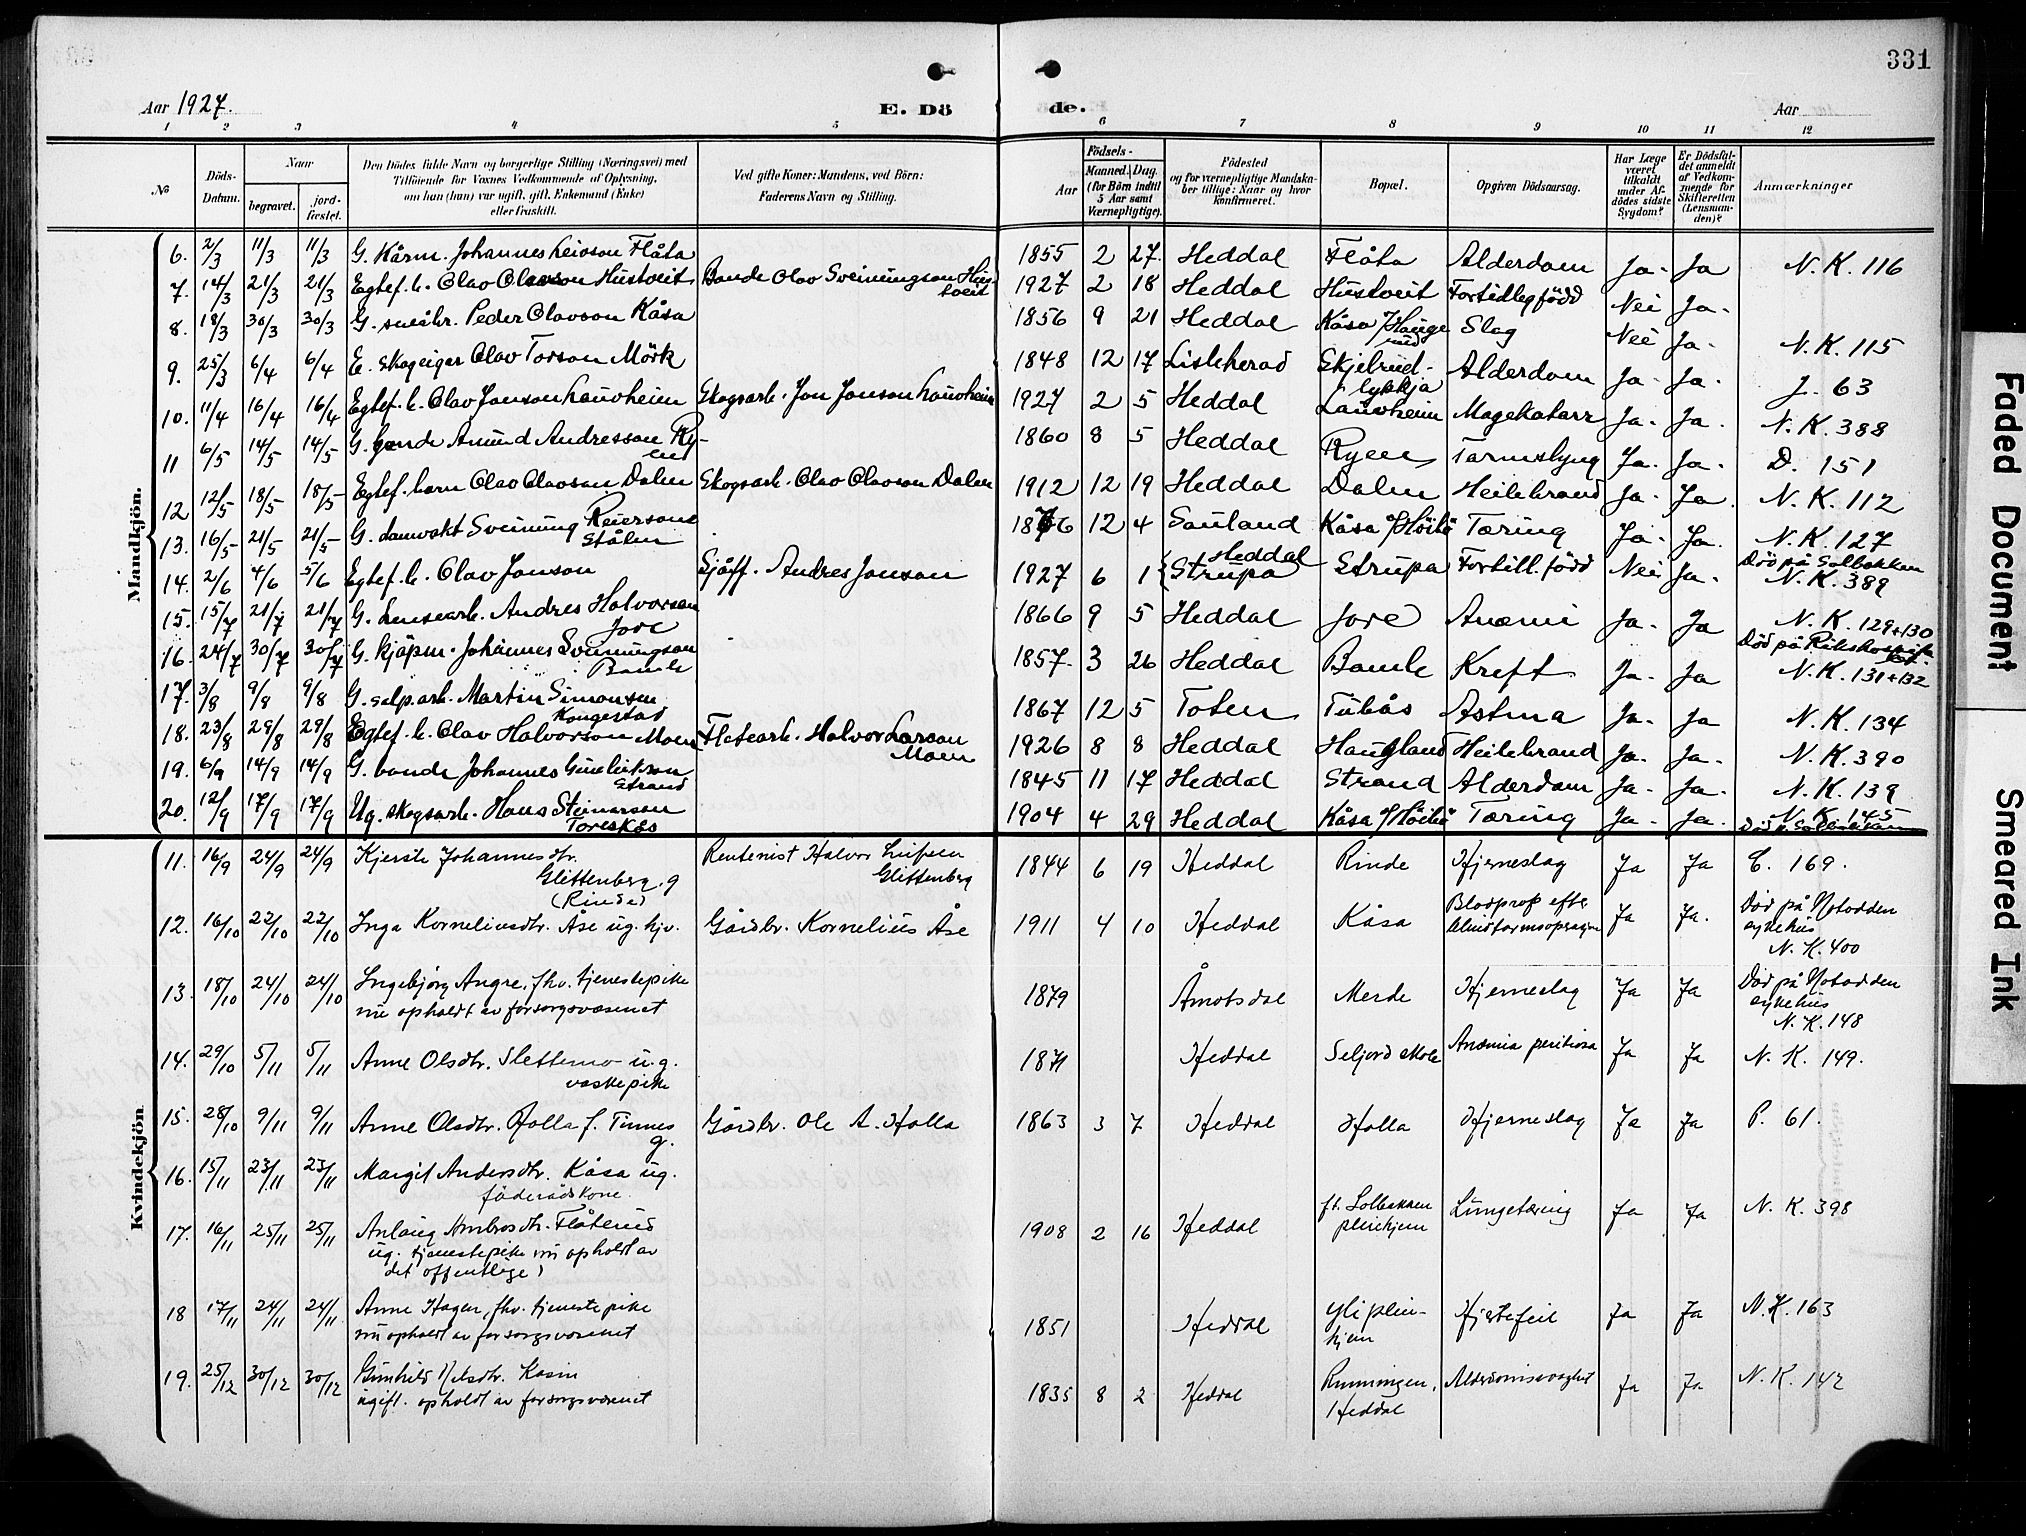 331
Aar 1927.
E. Dö de.
Aar
1 2 3 4 5 6 7 8 9 10 11 12
№
Döds-Datum.
Naar
begravet.
jord-fæstet.
Den Dödes fulde Navn og borgerlige Stilling (Næringsvei) med
Tilföiende for Voxnes Vedkommende af Oplysning,
om han (hun) var ugift, gift, Enkemand (Enke)
eller fraskilt.
Ved gifte Koner: Mandens, ved Börn:
Faderens Navn og Stilling.
Födsels-
Aar
Maaned. Dag.
(for Börn indtil
5 Aar samt
Værnepligtige).
Födested
og for værnepligtige Mandska-
ber tillige: Naar og hvor
konfirmeret.
Bopæl.
Opgiven Dödsaarsag.
Har Læge
været
tilkaldt
under Af-
dödes sidste
Sygdom?
Er Dödsfal-
det anmeldt
af Vedkom-
mende for
Skifteretten
(Lensman-
den)?
Anmærkninger
Mandkjön.
6. 2/3 11/3 11/3 G. Kårm. Johannes Leivson Flåta 1855 2 27 Heddal Flåta Alderdom Ja. Ja N.K. 116
7. 14/3 21/3 21/3 Egtef. b. Olav Olavson Hustveit Bonde Olav Sveinungson Hustveit 1927 2 18 Heddal Hustveit Fortidleg född Nei Ja.
8. 18/3 30/3 30/3 G. småbr. Peder Olavson Kåsa 1856 9 21 Heddal Kåsa Slag Nei Ja. N.K. 115
9. 25/3 6/4 6/4 E. Skogeigar Olav Torson Mörk 1848 12 17 Lisleherad Skjelrud-lykkja Alderdom Ja. Ja. J. 63
10. 11/4 16/4 16/4 Egtef. b. Olav Jonson Lauvheim Skogsarb. Jon Jonson Lauvheim 1927 2 5 Heddal Lauvheim Magekatarr Ja. Ja. N.K. 388
11 6/5 14/5 14/5 G. bonde Amund Andresson Ryen 1860 8 5 Heddal Ryen Tarmslyng Ja. Ja. D. 151
12 12/5 18/5 18/5 Egtef. barn Olav Olavson Dalen Skogsarb. Olav Olavson Dalen 1912 12 19 Heddal Dalen Heilebrand Ja. Ja. N.K. 112
13. 16/5 21/5 21/5 G. damvakt Sveinung Reierson Stålen 1876 12 4 Sauland Kåsa Tæring Ja. Ja. N.K. 127
Död på Solbakken
14. 2/6 4/6 5/6 Egtef. b. Olav Jonson Sjåff. Andres Jonson 1927 6 1 Heddal Strupa Strupa Fortill. född Nei Ja. N.K. 389
15. 15/7 21/7 21/7 G. Lensearb. Andres Halvorson Jore 1866 9 5 Heddal Jore Anæmi Ja. Ja N.K. 129+130
Död på Rikshospit.
16. 24/7 30/7 30/7 G. Kjöpm. Johannes Sveinungson Bamle 1857. 3 26 Heddal Bamle Kreft Ja. Ja N.K. 131+132
17. 3/8 9/8 9/8 G. salp.arb. Martin Simonsen Kongestad 1867 12 5 Toten Tubås Astma Ja. Ja N.K. 134
18. 23/8 29/8 29/8 Egtef. b. Olav Halvorson Moen Fletearb. Halvor Larson Moen 1926 8 8 Heddal Haugland Heilebrand Ja. Ja. N.K. 390
19. 6/9 14/9 14/9 G. bonde Johannes Gunleikson Strand 1845 11 17 Heddal Strand Alderdom Ja. Ja. N.K. 139
20. 12/9 17/9 17/9 Ug. skogsarb. Hans Steinarson Toreskås 1904 4 29 Heddal Kåsa Tæring Ja. Ja. N.K. 145
Kvindekjön.
11. 16/9 24/9 24/9 Kjersti Johannesdtr. Glittenberg. g (Rinde) Rentenist Halvor Glittenberg 1844 6 19 Heddal Rinde Hjerneslag Ja Ja C. 169.
12. 16/10 22/10 22/10 Inga Korneliusdtr. Åse ug. hjv. Gårdbr. Kornelius Åse 1911 4 10 Heddal Kåsa Blodprop efter blindtarmsoperasjon Ja Ja. Död på Notodden sykehus N.K. 400
13. 18/10 24/10 24/10 Ingebjörg Angre, fhv. tjenestepike
nu opholdt av forsorgsvæsenet 1879 Åmotsdal Merde Hjerneslag Ja Ja Död på Notodden sykehus N.K. 148
14. 29/10 5/11 5/11 Anne Olsdtr. Slettemo u.g. vaskepike 1871 Heddal Seljord skole Anæmia pernitiosa Ja Ja N.K. 149.
15. 28/10 9/11 9/11 Anne Olsdtr. Holla f. Tinnes g. Gårdbr. Ole A. Holla 1863 3 7 Heddal Holla Hjerneslag Ja Ja P. 61.
16. 15/11 23/11 23/11 Margit Andersdtr. Kåsa ug. föderådskone.
17. 16/11 25/11 25/11 Anlaug Ambrosdtr. Flåterud
ug. tjenestepike nu opholdt av
det offentlige) 1908 2 16 Heddal ft. Solbakken pleiehjem Lungetæring Ja Ja N.K. 398
18 17/11 24/11 24/11 Anne Hagen, fhv. tjenestepike
nu opholdt av forsorgsvæsenet 1851 Heddal Yli pleie-hjem Hjertefeil Ja Ja N.K. 163
19. 25/12 30/12 30/12 Gunhild Nelsdtr. Kasin
ugift. opholdt av forsorgsvæsenet 1835 8 2 Heddal Runningen, Heddal Alderdomssvaghet Ja Ja N.K. 142
Faded Document
Smeared Ink